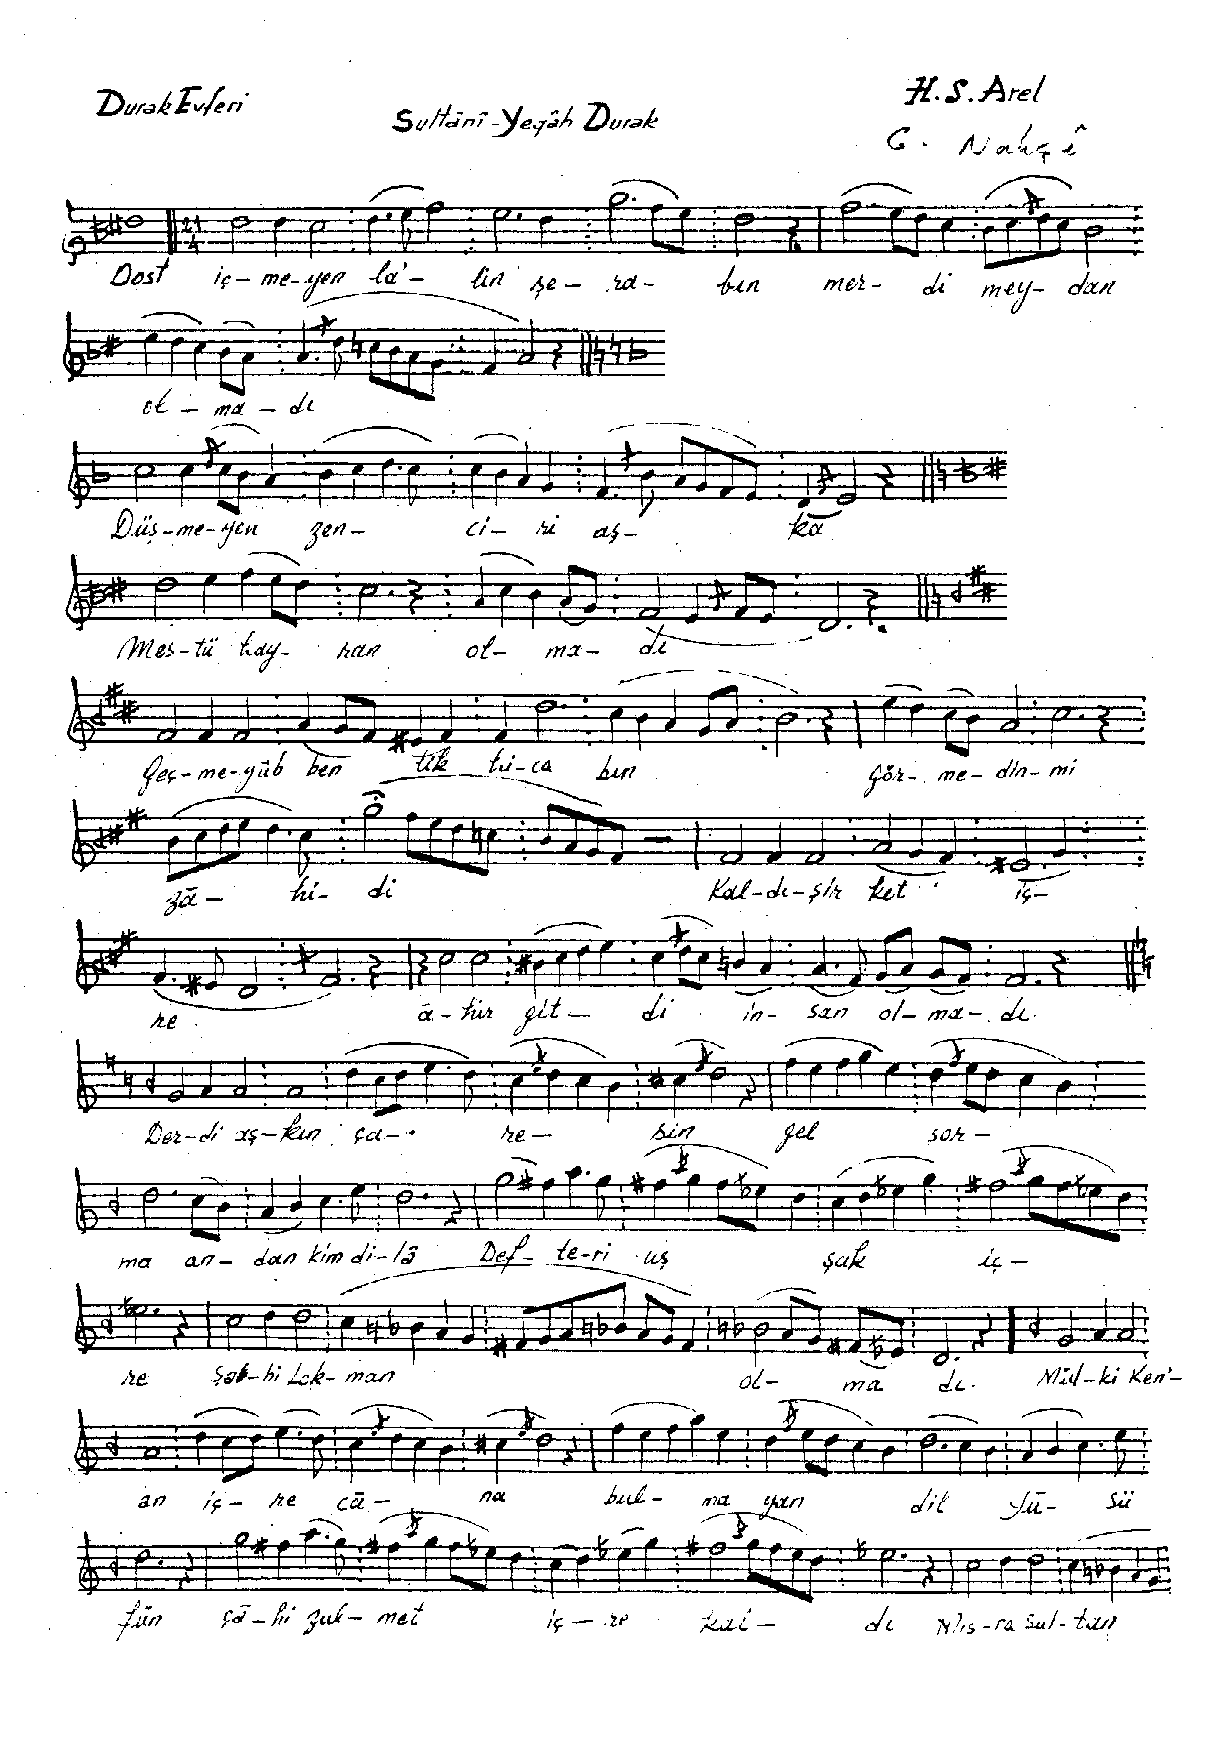 Durak Evferi
H. S. Arel
Sultânî-Yegâh Durak
G. Nahçî
21
4
Dost iç-me-yen la'-lin şe-ra-bın mer-di mey-dan
ol-ma-dı
Düş-me-yen zen-ci-ri aş-ka
Mes-tü hay-ran ol-ma-dı
Geç-me-yüb ben tik hi-ca bın gör-me-din-mi
zâ-hi-di Kal-dı-şir ket iç-
re â-hır git-di in-san ol-ma-dı.
Der-di aş-kın ça-re-sin gel sor-
ma an-dan kim di-lâ Def-te-ri uş şak iç-
re şah-hi Lok-man ol-ma dı. Mül-ki Ken'-
an iç-re câ-na bul-ma yan dil Yû-sü
fün çâ-hi zul-met iç-re kal-dı Mıs-ra sul-tan